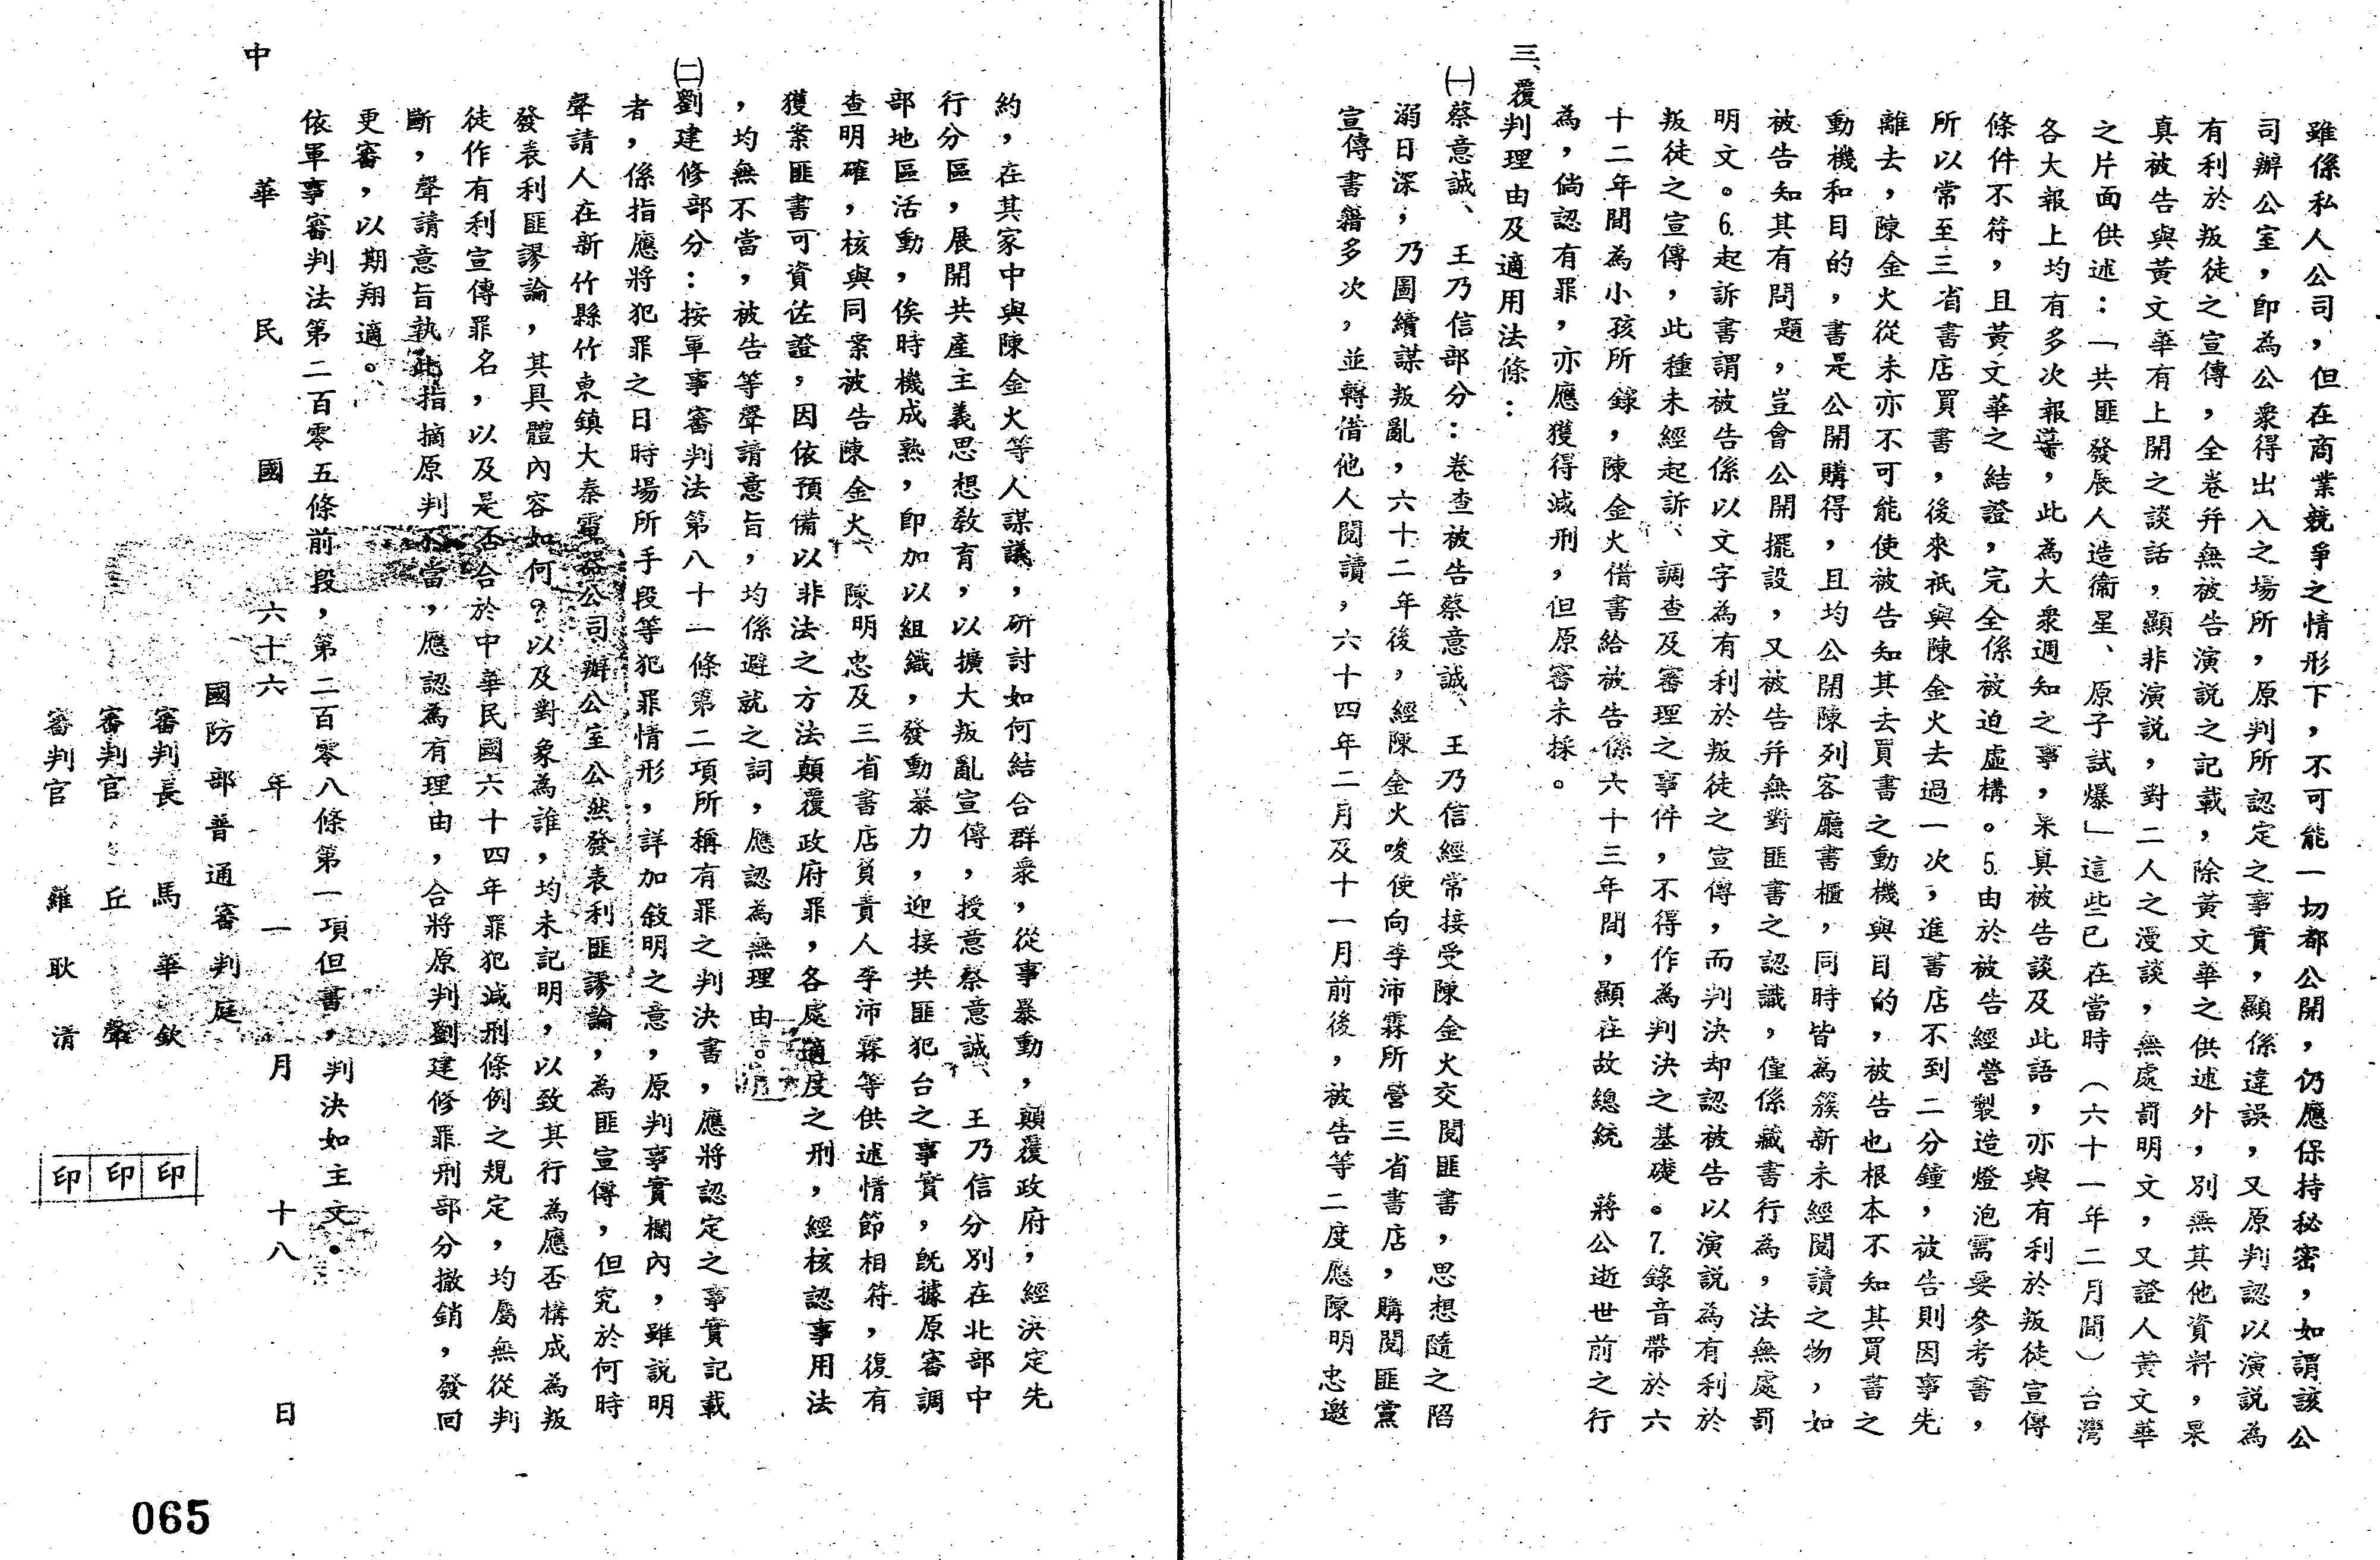 雖係私人公司，但在商業競爭之情形下，不可能一切都公開，仍應保持秘密，如謂該公
司辦公室，即為公衆得出入之場所，原判所認定之事實，顯係違誤，又原判認以演説為
有利於叛徒之宣傳，全卷幷無被告演説之記載，除黃文華之供述外，別無其他資料，果
真被告與黃文華有上開之談話，顯非演説，對二人之漫談，無處罰明文，又證人黃文華
之片面供述：「共匪發展人造衞星、原子試爆」這些已在當時（六十一年二月間）台灣
各大報上均有多次報導，此為大衆週知之事，果真被告談及此語，亦與有利於叛徒宣傳
條件不符，且黃文華之結證，完全係被迫虛構。5.由於被告經營製造燈泡需要參考書，
所以常至三省書店買書，後來祇與陳金火去過一次，進書店不到二分鐘，被告則因事先
離去，陳金火從未亦不可能使被告知其去買書之動機與目的，被告也根本不知其買書之
動機和目的，書是公開購得，且均公開陳列客廳書櫃，同時皆為簇新未經閱讀之物，如
被告知其有問題，豈會公開擺設，又被告幷無對匪書之認識，僅係藏書行為，法無處罰
明文。6.起訴書謂被告係以文字為有利於叛徒之宣傳，而判決却認被告以演説為有利於
叛徒之宣傳，此種未經起訴、調查及審理之事件，不得作為判決之基礎。7.錄音帶於六
十二年間為小孩所錄，陳金火借書給被告係六十三年間，顯在故總統　蔣公逝世前之行
為，倘認有罪，亦應獲得減刑，但原審未採。
三、覆判理由及適用法條：
㈠蔡意誠、王乃信部分：卷查被告蔡意誠、王乃信經常接受陳金火交閱匪書，思想隨之陷
溺日深，乃圖續謀叛亂，六十二年後，經陳金火唆使向李沛霖所營三省書店，購閱匪黨
宣傳書籍多次，並轉借他人閱讀，六十四年二月及十一月前後，被告等二度應陳明忠邀
約，在其家中與陳金火等人謀議，研討如何結合群衆，從事暴動，顛覆政府，經決定先
行分區，展開共產主義思想教育，以擴大叛亂宣傳，授意蔡意誠、王乃信分別在北部中
部地區活動，俟時機成熟，即加以組織，發動暴力，迎接共匪犯台之事實，既據原審調
查明確，核與同案被告陳金火、陳明忠及三省書店負責人李沛霖等供述情節相符，復有
獲案匪書可資佐證，因依預備以非法之方法顛覆政府罪，各處適度之刑，經核認事用法
，均無不當，被告等聲請意旨，均係避就之詞，應認為無理由。
㈡劉建修部分：按軍事審判法第八十一條第二項所稱有罪之判決書，應將認定之事實記載
者，係指應將犯罪之日時場所手段等犯罪情形，詳加敍明之意，原判事實欄內，雖説明
聲請人在新竹縣竹東鎮大秦電器公司辦公室公然發表利匪謬論，為匪宣傳，但究於何時
發表利匪謬論，其具體內容如何？以及對象為誰，均未記明，以致其行為應否構成為叛
徒作有利宣傳罪名，以及是否合於中華民國六十四年罪犯減刑條例之規定，均屬無從判
斷，聲請意旨執此指摘原判不當，應認為有理由，合將原判劉建修罪刑部分撤銷，發回
更審，以期翔適。
依軍事審判法第二百零五條前段，第二百零八條第一項但書，判決如主文。
中華民國六十六年一月十八日
國防部普通審判庭
審判長　馬華欽　印
審判官　丘聲　印
審判官　羅耿清　印
065